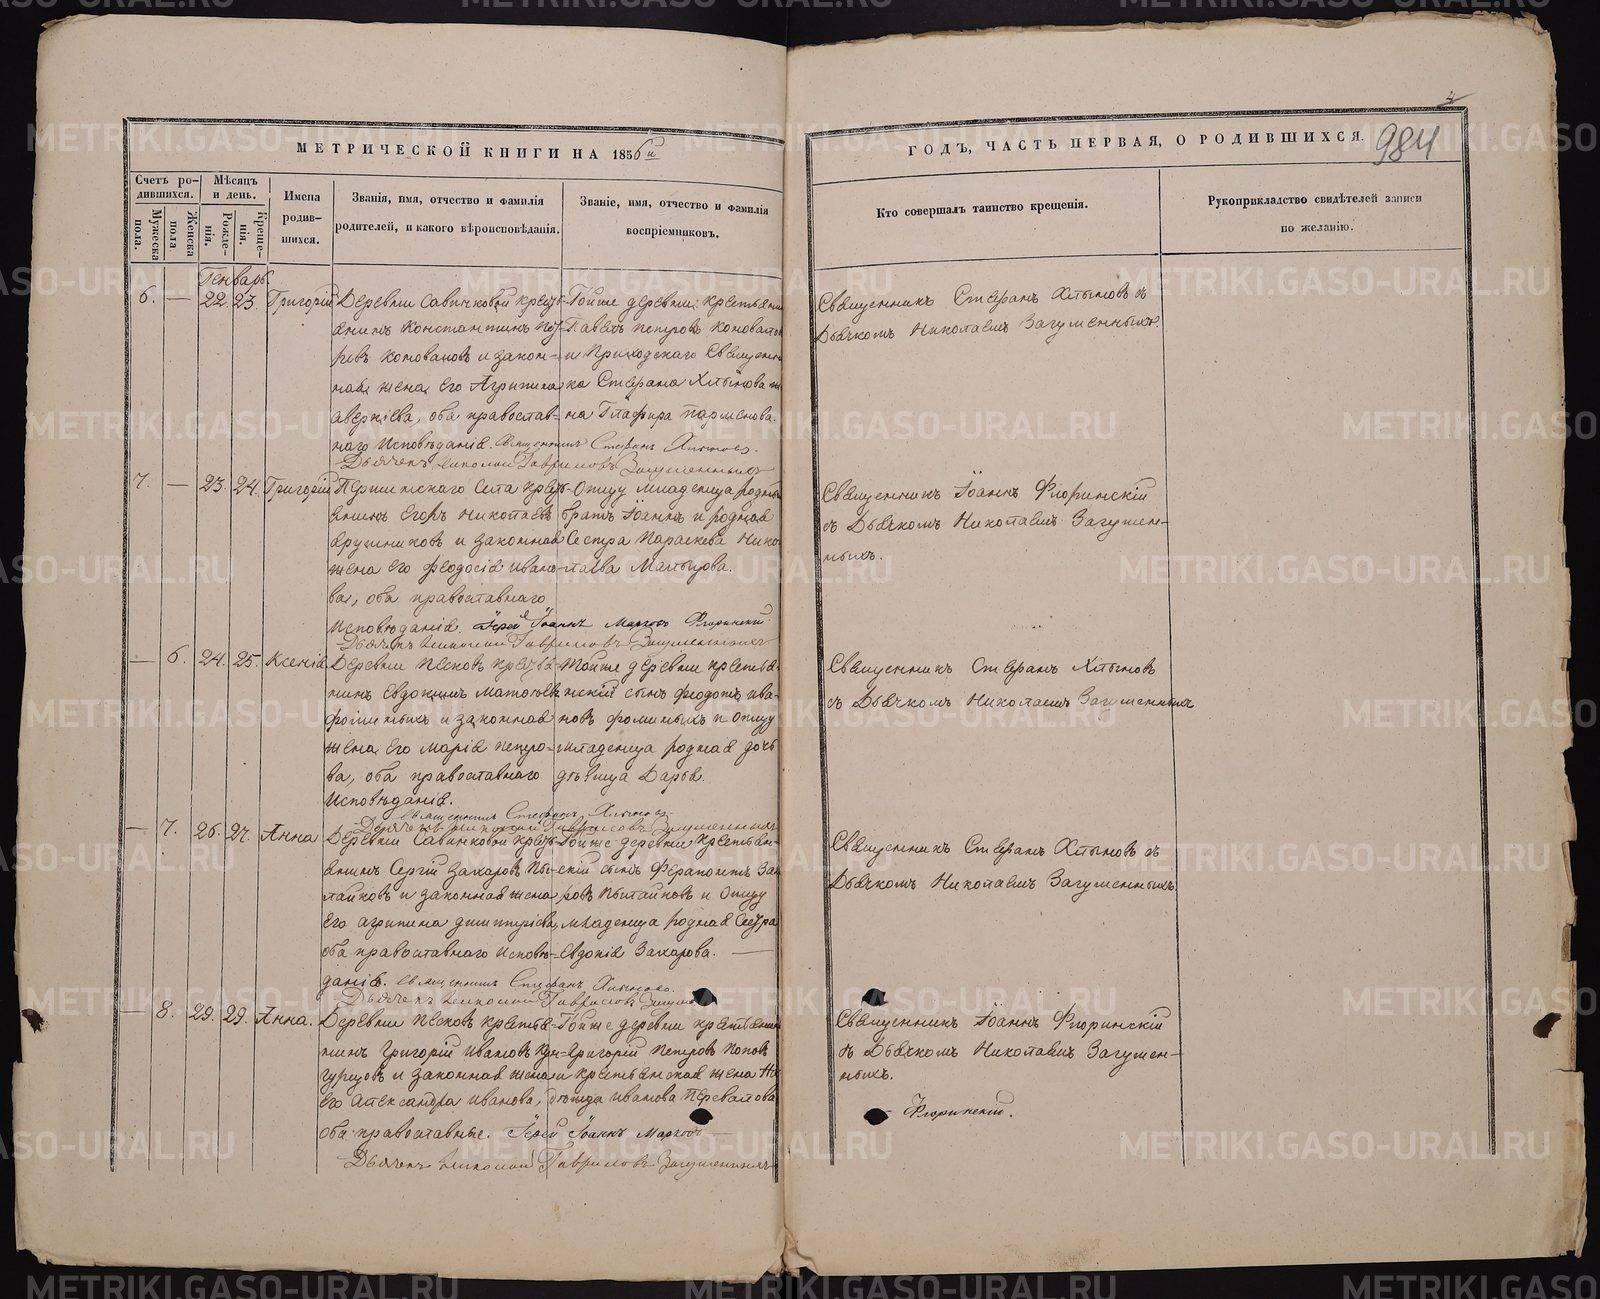 4
МЕТРИЧЕСКОЙ КНИГИ НА 1856й
ГОДЪ, ЧАСТЬ ПЕРВАЯ, О РОДИВШИХСЯ.
984
Счетъ родившихся.
Мужеска пола.
Женска пола
Мѣсяцъ и день.
Рожденія.
Крещенія.
Имена родившихся.
Званія, имя, отчество и фамилія
родителей, и какого вѣроисповѣданія.
Званіе, имя, отчество и фамилія
воспріемниковъ.
Кто совершалъ таинство крещенія.
Рукоприкладство свидѣтелей записи
по желанію.
Генварь
6. — 22. 23. Григорій
Деревни Савичковой кресть-
янинъ Константинъ Пет-
ровъ Коноваловъ и закон-
ная жена его Агрипина
Аверкіева, оба православ-
наго исповѣданія. Священникъ Стефанъ Хлыновъ.
Дьячекъ Николай Гавриловъ Загуменныхъ
Тойже деревни крестьянинъ
Павелъ Петровъ Коноваловъ
и Приходскаго Священни-
ка Стефана Хлынова же-
на Глафира Парменова.
Священникъ Стефанъ Хлыновъ съ
Дьячкомъ Николаемъ Загуменныхъ.
7. — 23. 24. Григорій
села кресть-
янинъ Егоръ Николаевъ
и законная
жена его Феодосія Ивано-
ва, оба православнаго
исповѣданія. Іерей Іоаннъ Флоринскій
Дьячекъ Николай Гавриловъ Загуменныхъ
Отцу младенца родный
братъ Іоаннъ и родная
сестра Параскева Нико-
лаева Мальцова.
Священникъ Іоаннъ Флоринскій
съ Дьячкомъ Николаемъ Загумен-
ныхъ.
— 6. 24. 25. Ксенія
Деревни Песковъ крестья-
нинъ Евдокимъ
Фоминыхъ и законная
жена его Марія Петро-
ва, оба православнаго
исповѣданія.
Священникъ Стефанъ Хлыновъ
Дьячекъ Николай Гавриловъ Загуменныхъ
Тойже деревни крестья-
нскій сынъ Феодотъ Ива-
новъ Фоминыхъ и отцу
младенца родная дочь
дѣвица Дарья.
Священникъ Стефанъ Хлыновъ
съ Дьячкомъ Николаемъ Загуменныхъ
— 7. 26. 27. Анна
Деревни Савичковой кресть-
янинъ Сергій Захаровъ Пы-
талковъ и законная жена
его Агрипина Димитріева,
оба православнаго исповѣ-
данія. Священникъ Стефанъ Хлыновъ.
Дьячекъ Николай Гавриловъ
Тойже деревни крестьян-
скій сынъ Ферапонтъ Заха-
ровъ Пыталковъ и отцу
младенца родная сестра
Евдокія Захарова. —
Священникъ Стефанъ Хлыновъ съ
Дьячкомъ Николаемъ Загуменныхъ
— 8. 29. 29. Анна.
Деревни Песковъ крестья-
нинъ Григорій Ивановъ
и законная жена
его Александра Иванова,
оба православные. Іерей Іоаннъ —
Дьячекъ Николай Гавриловъ Загуменныхъ
Тойже деревни крестьянинъ
Григорій Петровъ Поповъ
и крестьянская жена
Иванова Перевалова
Священникъ Іоаннъ Флоринскій
съ Дьячкомъ Николаемъ Загумен-
ныхъ.
— Флоринскій.
METRIKI.GASO-URAL.RU